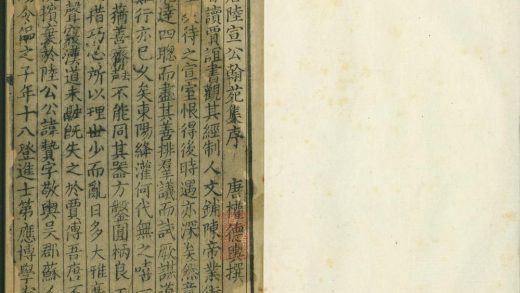 陸宣公翰苑集序 唐權德輿撰
讀賈誼書觀其經制人文鋪陳帝業術
待之宣室恨得後時遇亦深矣然竟
達四聰而盡其善排羣議而試厥謀道
如行亦已久矣東陽絳灌何代無之嘻
蕕善齊不能同其器方鑿圓枘良工
措巧心所以理世少而亂日多大雅
聲寢漢道未融既失之於賈傅吾唐不
擯棄於陸公公諱贄字敬輿吳郡蘇
令之子年十八登進士第應博學宏